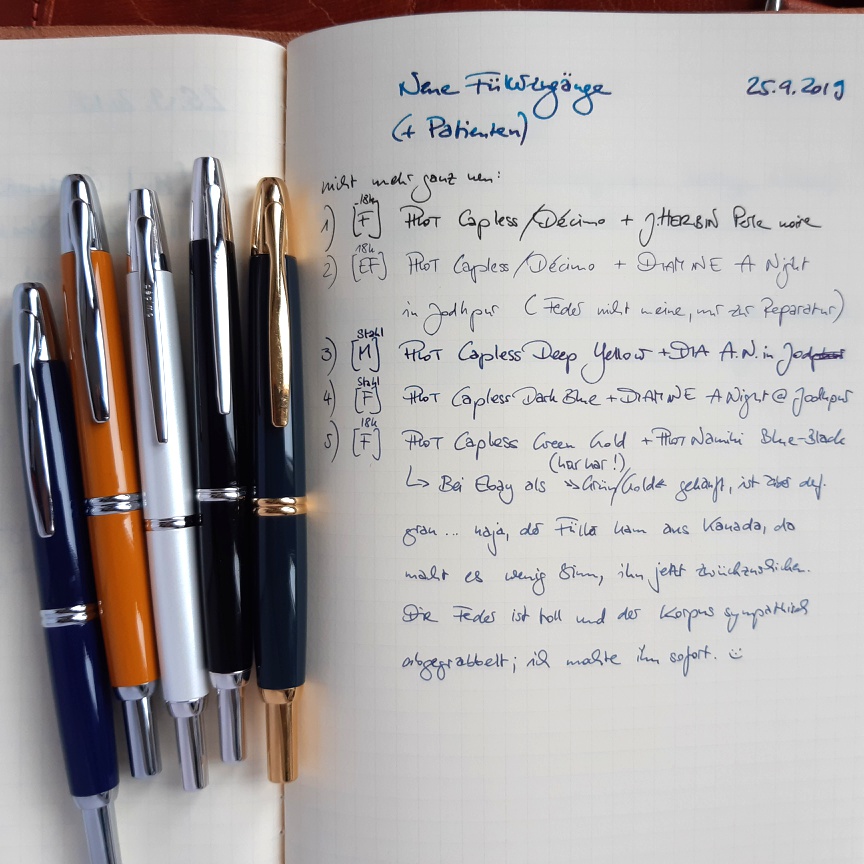 Neue Füllerzugänge 25.9.2019
(+ Patienten)
nicht mehr ganz neu:
1) [F] 18k PILOT Capless/Décimo + J.HERBIN Perle noire
2) [EF] 18k PILOT Capless/Décimo + DIAMINE A Night
in Jodhpur (Feder nicht meine, nur zur Reparatur)
3) [M] Stahl PILOT Capless Deep Yellow + DIA A.N. in Jodphur
4) [F] Stahl PILOT Capless Dark Blue + DIAMINE A Night @ Jodhpur
5) [F] 18k PILOT Capless Green Gold + PILOT Namiki Blue-Black
(har har!)
↳ Bei Ebay als »Grün/Gold« gekauft, ist aber def.
grau ... naja, der Füller kam aus Kanada, da
macht es wenig Sinn, ihn jetzt zurückzuschicken.
Die Feder ist toll und der Korpus sympathisch
abgegrabbelt; ich mochte ihn sofort. ☺